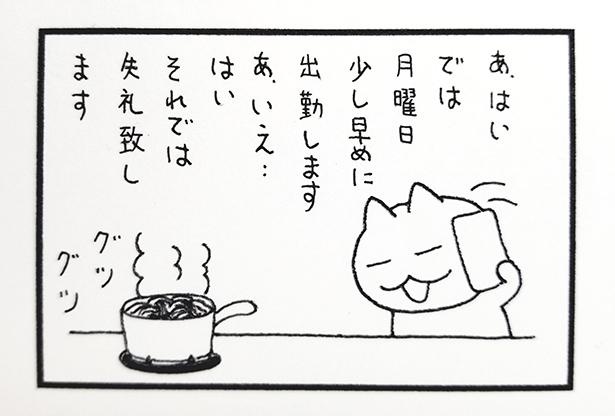 あ、はい
では
月曜日
少し早めに
出勤します
あ、いえ…
はい
それでは
失礼致し
ます
グツ
グツ